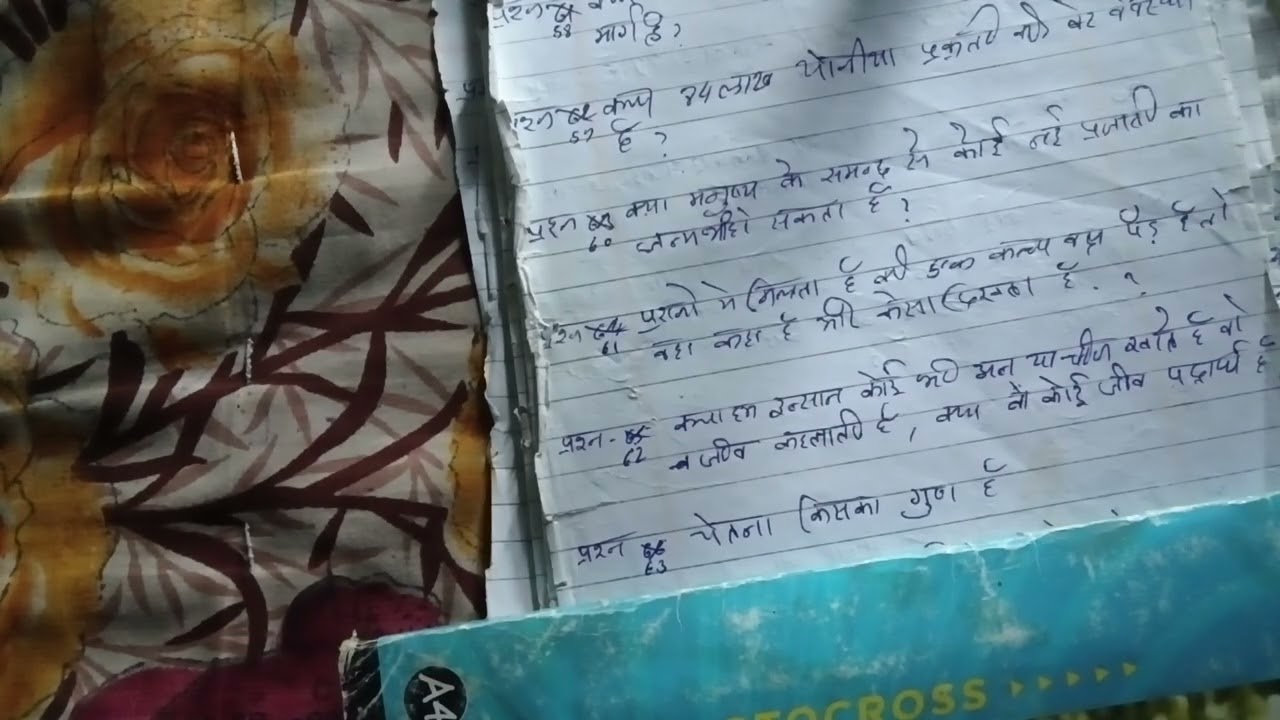 प्रश्न
58 मार्ग है ?
प्रश्न क्या 84 लाख योनीया प्रकृती की
59 है ?
प्रश्न क्या मनुष्य के समन्द से कोई नई प्रजाती का
60 जन्म भी हो सकता है ?
प्रश्न पुरानो मे मिलता है की एक कल्प वृक्ष पेड़ है तो
61 वहा कहा है और केसा दिखता है . ?
प्रश्न - क्या हम इन्सान कोई भी अन या चीज खाते है वो
62 जीव कहलाती है , क्या वो कोई जीव पद्रार्थ है
प्रश्न चेतना किसका गुण है
63
A4
TOCROSS